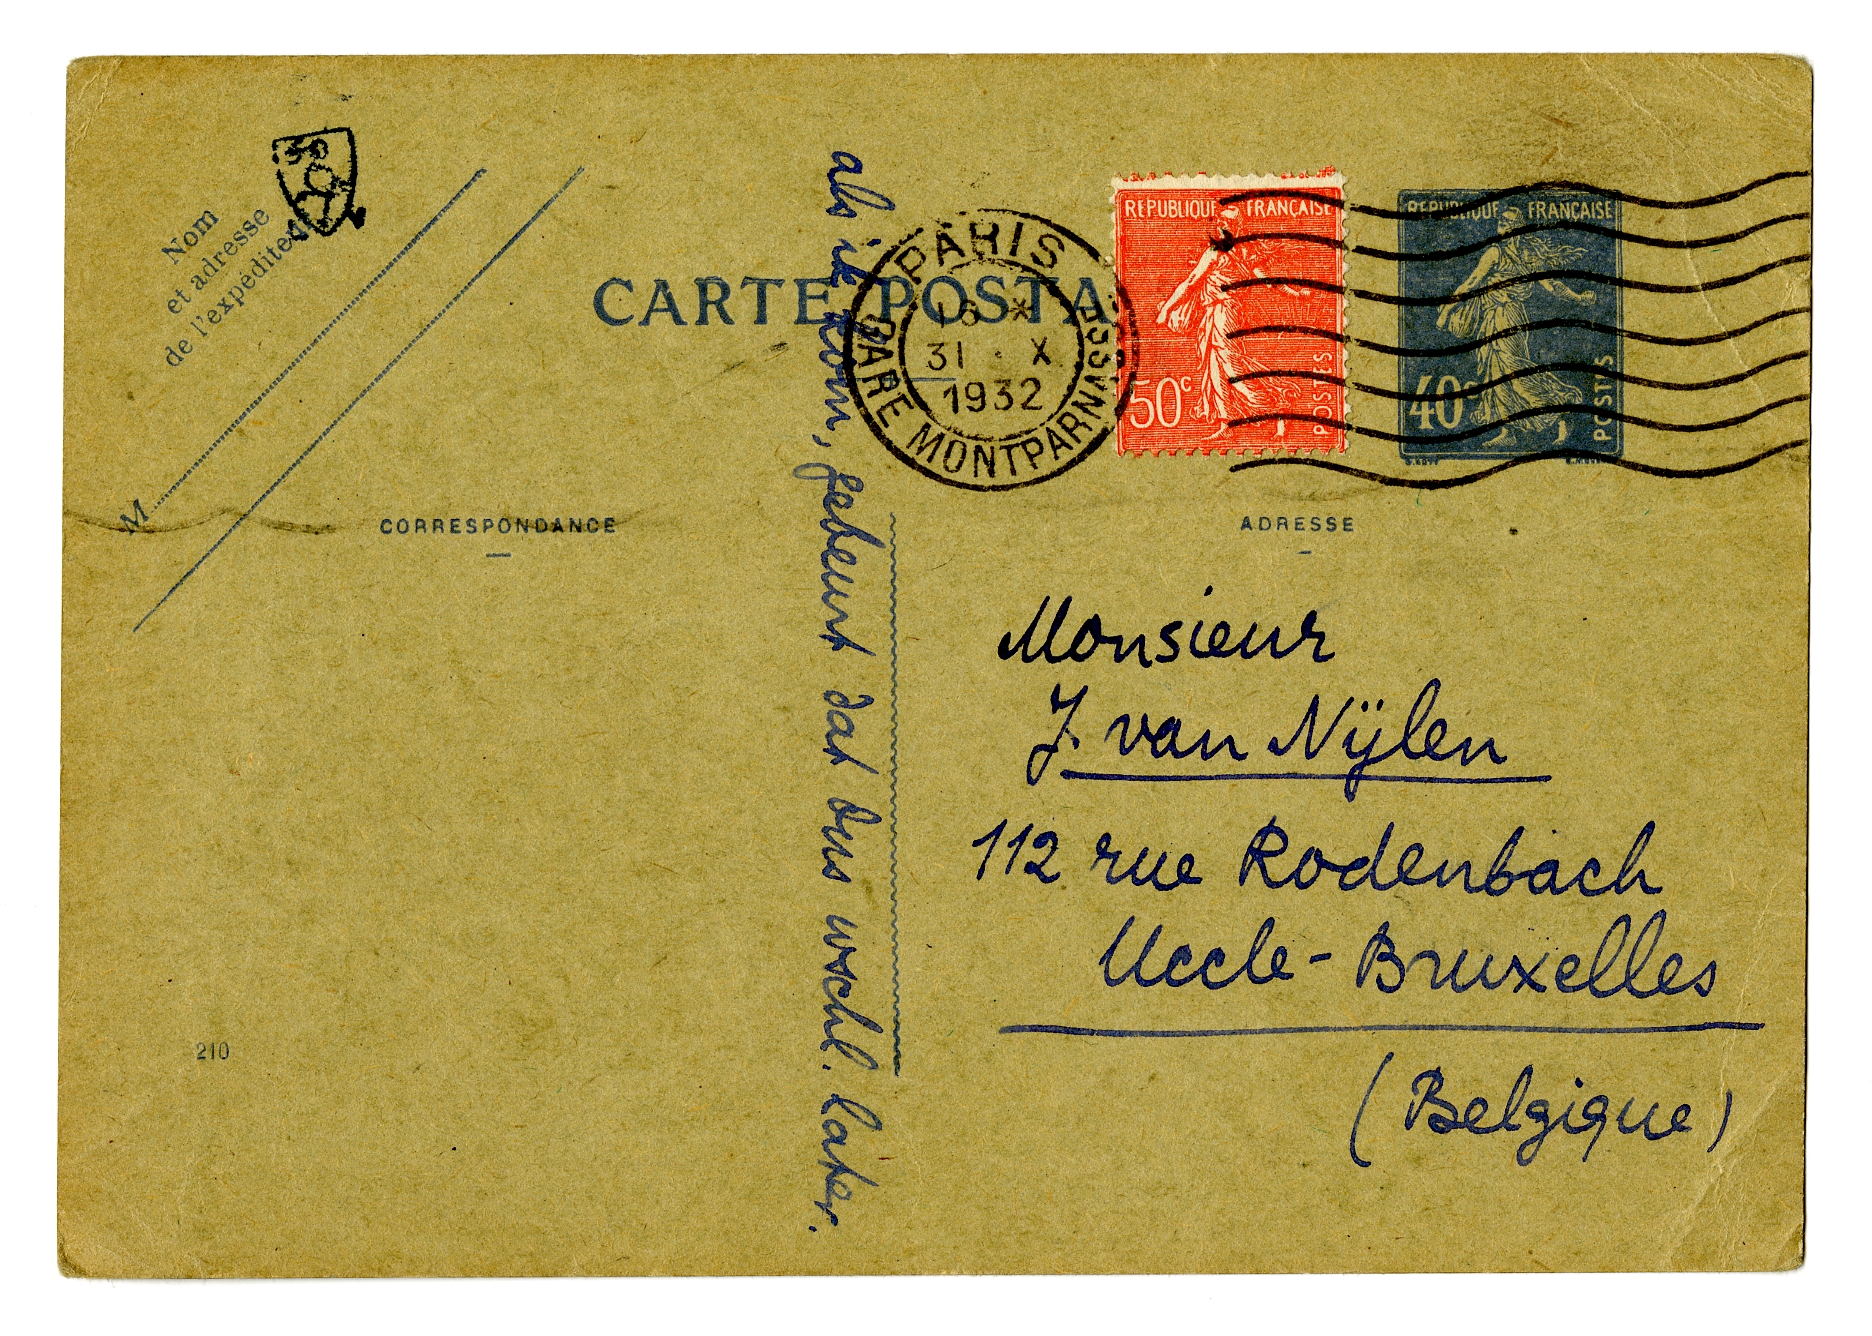 Nom
et adresse
de l'expéditeur
M
CARTE POSTA
PARIS
GARE MONTPARNASSE
16 *
31 X
1932
REPUBLIQUE FRANÇAISE
50c
POSTES
REPUBLIQUE FRANÇAISE
40c
POSTES
CORRESPONDANCE
ADRESSE
als ik kom, gebeurt dat dus wschl. later.
Monsieur
J. van Nijlen
112 rue Rodenbach
Uccle-Bruxelles
(Belgique)
210